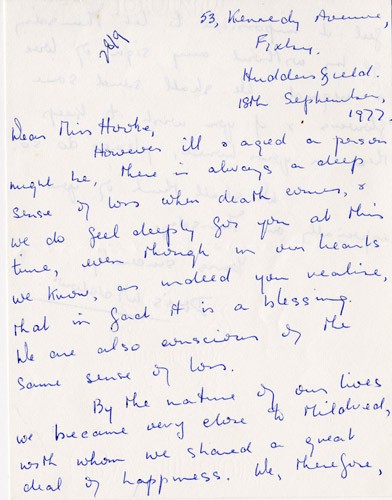 53, Kennedy Avenue,
Fixby,
Huddersfield.
26/9
18th September,
1977.
Dear Miss Hooke,
However ill & aged a person
might be, there is always a deep
sense of loss when death comes, &
we do feel deeply for you at this
time, even though in our hearts
we know, as indeed you realise,
that in fact it is a blessing.
We are also conscious of the
same sense of loss.
By the nature of our lives
we became very close to Mildred,
with whom we shared a great
deal of happiness. We, therefore,